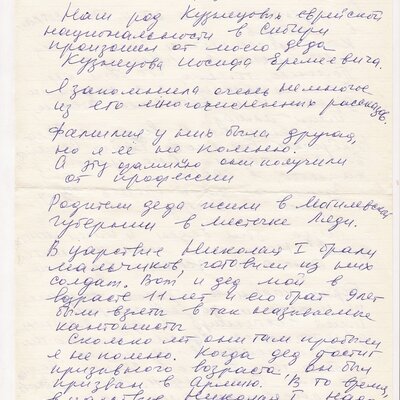 Наш род Кузнецовых еврейской
национальности в Сибири
произошел от моего деда
Кузнецова Иосифа Еремеевича.
Я запомнила очень немногое
из его многочисленных рассказов.
Фамилия у них была другая,
но я её не помню.
А эту фамилию они получили
от профессии
Родители деда жили в Могилевской
губернии в местечке Ляди.
В царствие Николая I брали
мальчиков, готовили из них
солдат. Вот и дед мой в
возрасте 11 лет и его брат 9 лет
были взяты в так называемые
кантонисты
Сколько лет они там пробыли
я не помню. Когда дед достиг
призывного возраста он был
призван в Армию. В то время,
в царствие Николая I